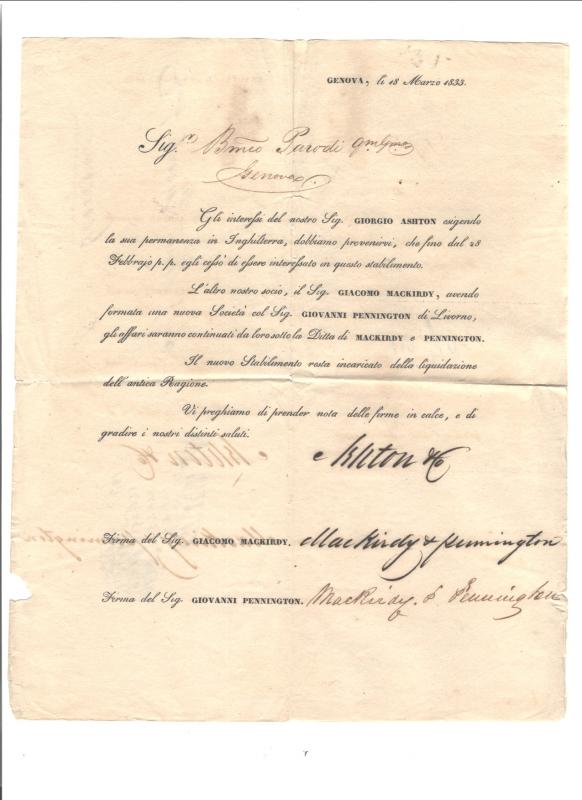 GENOVA, li 18 Marzo 1833.
Sig.r Bmeo Parodi qm Gmo
Genova
Gli interessi del nostro Sig. GIORGIO ASHTON esigendo
la sua permanenza in Inghilterra, dobbiamo prevenirvi, che fino dal 28
Febbrajo p. p. egli cessò di essere interessato in questo stabilimento.
L'altro nostro socio, il Sig. GIACOMO MACKIRDY, avendo
formata una nuova Società col Sig. GIOVANNI PENNINGTON di Livorno,
gli affari saranno continuati da loro sotto la Ditta di MACKIRDY e PENNINGTON.
Il nuovo Stabilimento resta incaricato della liquidazione
dell'antica Ragione.
Vi preghiamo di prender nota delle firme in calce, e di
gradire i nostri distinti saluti.
Ashton & C
Firma del Sig. GIACOMO MACKIRDY. MacKirdy & Pennington
Firma del Sig. GIOVANNI PENNINGTON. MacKirdy & Pennington